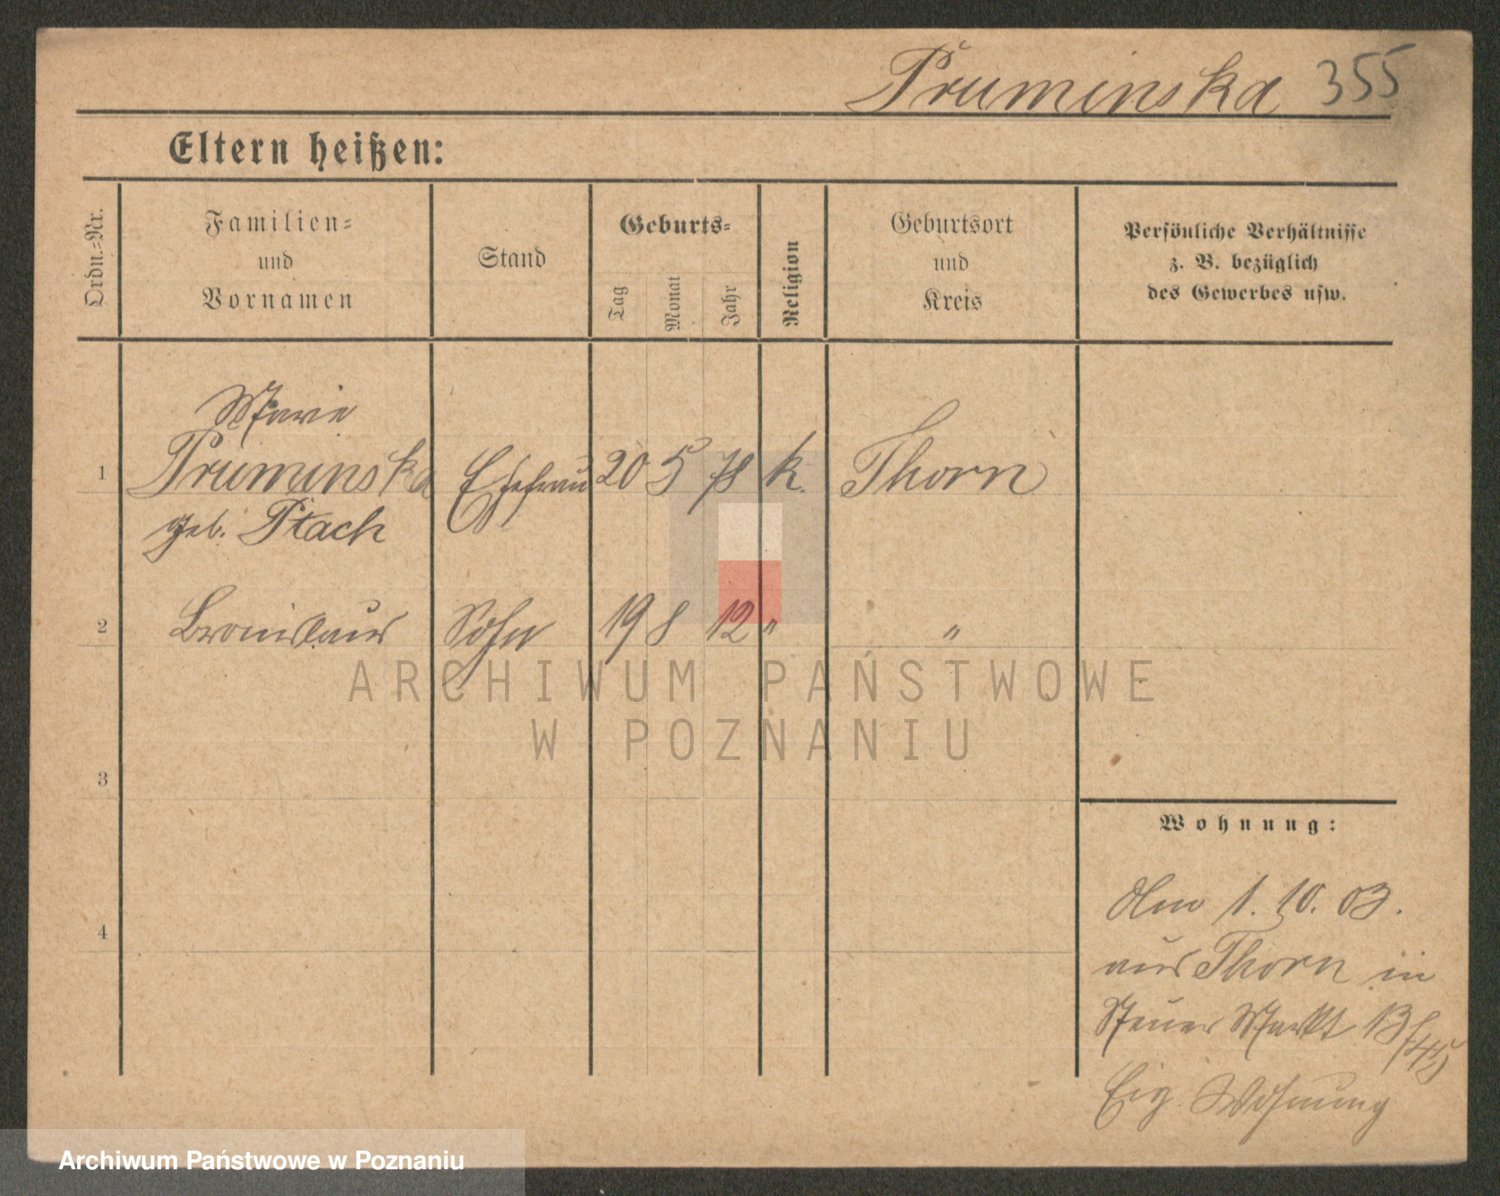 Pruminska 355
Eltern heißen:
Ordn.-Nr.
Familien-
und
Vornamen
Stand
Geburts-
Tag
Monat
Jahr
Religion
Geburtsort
und
Kreis
Persönliche Verhältnisse
z. B. bezüglich
des Gewerbes usw.
Marie
1 Pruminska Ehefrau 20 5 78 k. Thorn
geb. Ptach
2 Bronislaus Sohn 19 8 12 " "
ARCHIWUM PAŃSTWOWE
W POZNANIU
3
Wohnung:
4
Am 1. 10. 03.
aus Thorn in
Neuer Markt 13
Eig. Wohnung
Archiwum Państwowe w Poznaniu